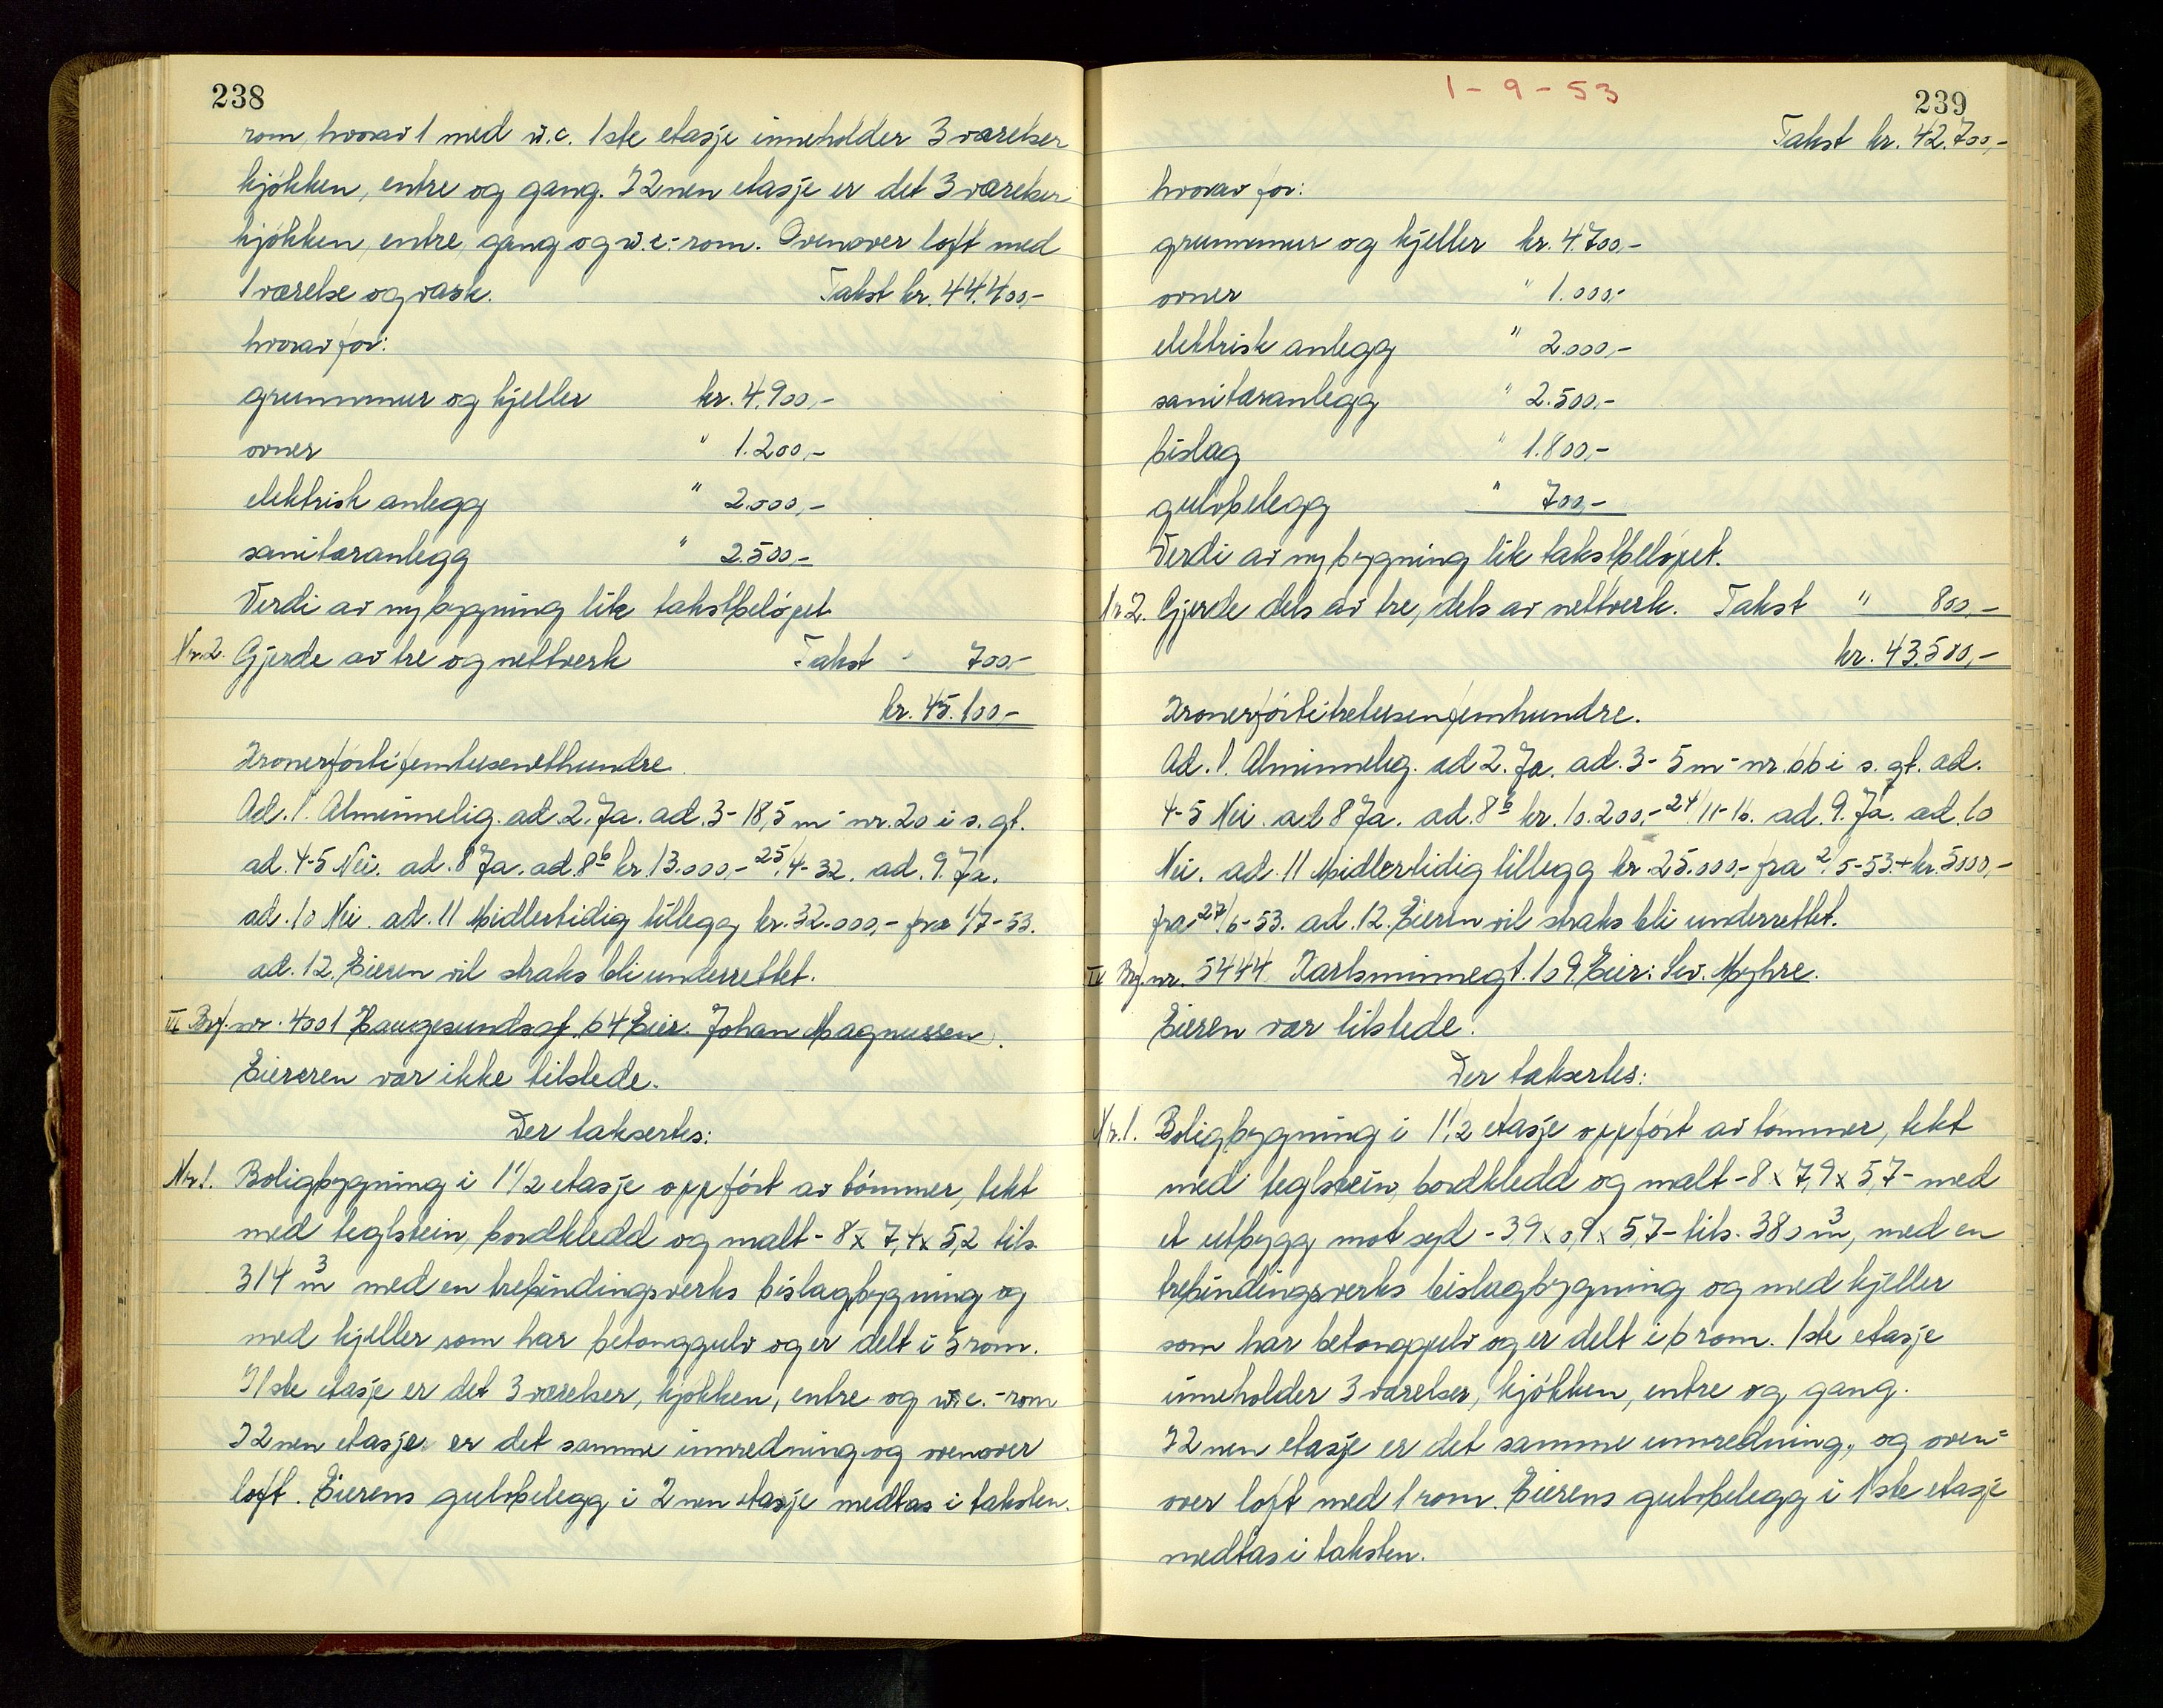 238
rom, hvorav 1 med w.c. 1ste etasje inneholder 3 værelser
kjøkken, entre og gang. I 2nen etasje er det 3 værelser
kjøkken, entre, gang og w.c.-rom. Ovenover loft med
1 værelse og vask. Takst kr. 44.400,-
hvorav for:
grunnmur og kjeller kr. 4.900,-
ovner " 1.200,-
elektrisk anlegg " 2.000,-
sanitæranlegg " 2.500,-
Verdi av ny bygning lik takstbeløpet
Nr. 2. Gjerde av tre og nettverk Takst " 700,-
kr. 45.100,-
Kronerførtifemtusenethundre.
Ad. 1. Alminnelig. ad. 2. Ja. ad. 3- 18,5 m - nr. 20 i s. gt.
ad. 4-5 Nei. ad. 8 Ja. ad. 8b kr. 13.000,- 25/4-32. ad. 9. Ja.
ad. 10 Nei. ad. 11 Midlertidig tillegg kr. 32.000,- fra 1/7-53.
ad. 12. Eieren vil straks bli underrettet.
III Brf. nr. 4001 Haugesundsgt. 64 Eier: Johan Magnussen.
Eiereren var ikke tilstede.
Der taksertes:
Nr. 1. Boligbygning i 1 1/2 etasje oppført av tømmer, tekt
med teglstein, bordkledd og malt - 8 x 7,4 x 5,2 tils.
314 m3 med en trebindingsverks bislagbygning og
med kjeller som har betonggulv og er delt i 5 rom.
I 1ste etasje er det 3 værelser, kjøkken, entre og w.c.-rom
I 2nen etasje er det samme innredning og ovenover
loft. Eierens gulvbelegg i 2nen etasje medtas i taksten.
1-9-53
239
Takst kr. 42.700,-
hvorav for:
grunnmur og kjeller kr. 4.700,-
ovner " 1.000,-
elektrisk anlegg " 2.000,-
sanitæranlegg " 2.500,-
bislag " 1.800,-
gulvbelegg " 700,-
Verdi av ny bygning lik takstbeløpet.
Nr. 2. Gjerde dels av tre, dels av nettverk. Takst " 800,-
kr. 43.500,-
Kronerførtitretusenfemhundre.
Ad. 1. Alminnelig. ad 2. Ja. ad. 3- 5 m - nr. 66 i s. gt. ad.
4-5 Nei. ad 8 Ja. ad. 8b kr. 10.200,- 24/11-16. ad. 9. Ja. ad. 10
Nei. ad. 11 Midlertidig tillegg kr. 25.000,- fra 2/5-53 + kr. 5000,-
fra 27/6-53. ad. 12. Eieren vil straks bli underrettet.
IV Brf. nr. 5444. Karlsminnegt. 109. Eier: Sev. Myhre.
Eieren var tilstede.
Der taksertes:
Nr. 1. Boligbygning i 1 1/2 etasje oppført av tømmer, tekt
med teglstein, bordkledd og malt - 8 x 7,9 x 5,7 - med
et utbygg mot syd - 3,9 x 0,9 x 5,7 - tils. 380 m3, med en
trebindingsverks bislagbygning og med kjeller
som har betonggulv og er delt i 6 rom. 1ste etasje
inneholder 3 værelser, kjøkken, entre og gang.
I 2nen etasje er det samme innredning, og oven=
over loft med 1 rom. Eierens gulvbelegg i 1ste etasje
medtas i taksten.